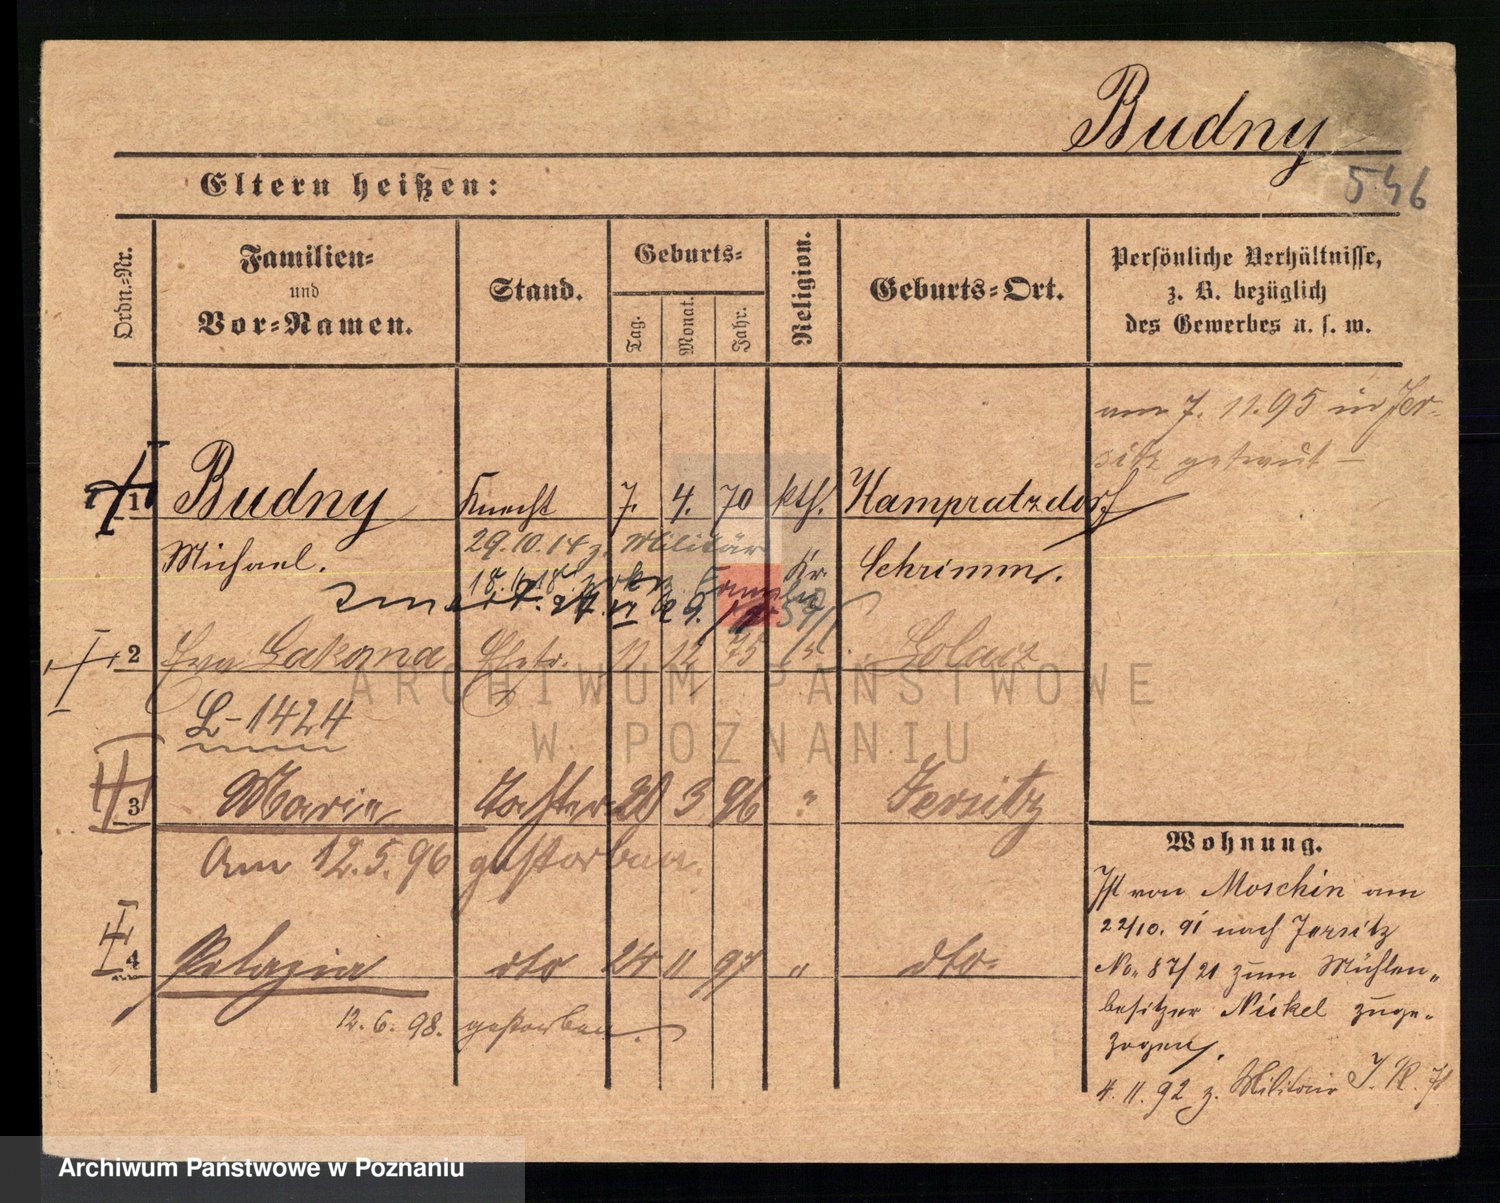 Budny
546
Eltern heißen:
Ordn.-Nr.
Familien-
und
Vor-Namen.
Stand.
Geburts-
Tag.
Monat.
Jahr.
Religion.
Geburts-Ort.
Persönliche Verhältnisse,
z. B. bezüglich
des Gewerbes u. s. w.
am 7. 11. 95 in Jer-
sitz getraut –
1 Budny Knecht 7. 4. 70 kth. Kampratzdorf
Michael. 29.10.14 z. Militär Kr. Schrimm.
18. Familie
2 Eva Lakoma 11 12 75
L-1424
3 Maria Tochter 20 3 96 " Jersitz
Am 12.5.96 gestorben.
4 Pelagia dto 24 11 97 " dto-
12. 6. 98. gestorben.
Wohnung.
Ist von Moschin am
22/10. 91 nach Jersitz
No. 87/21 zum Mühlen-
besitzer Nickel zuge-
zogen.
4. 11. 92 z. Militair
ARCHIWUM PAŃSTWOWE
W POZNANIU
Archiwum Państwowe w Poznaniu